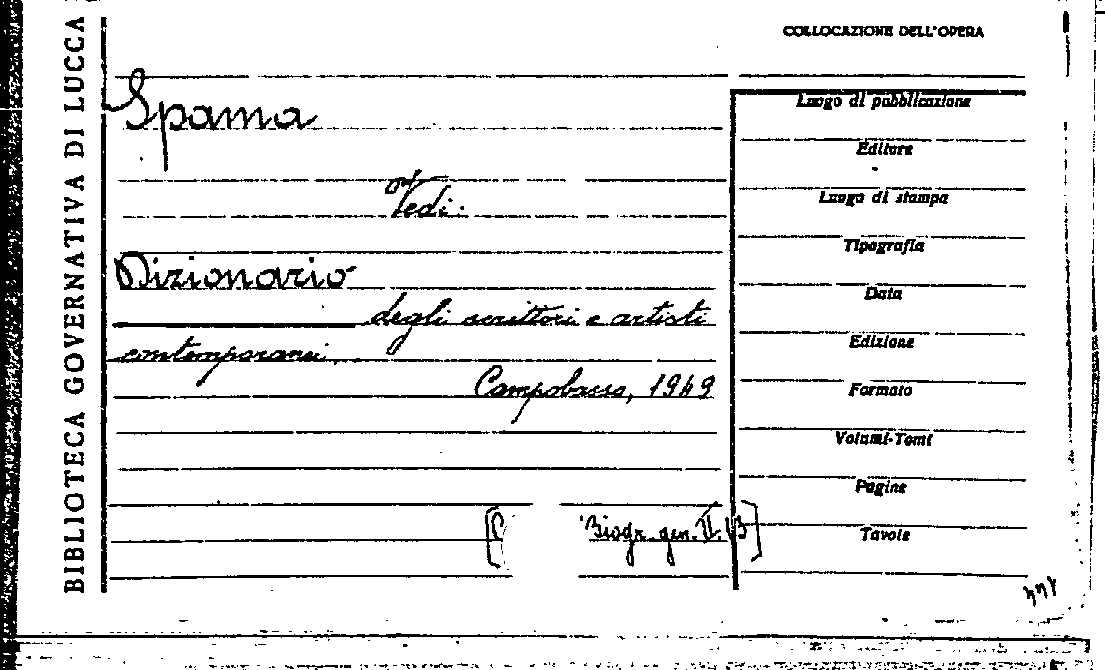 BIBLIOTECA GOVERNATIVA DI LUCCA
COLLOCAZIONE DELL'OPERA
Spama
Vedi:
Dizionario
degli scrittori e artisti
contemporanei.
Campobasso, 1949
Biogr. gen. II.
Luogo di pubblicazione
Editore
Luogo di stampa
Tipografia
Data
Edizione
Formato
Volumi-Tomi
Pagine
Tavole